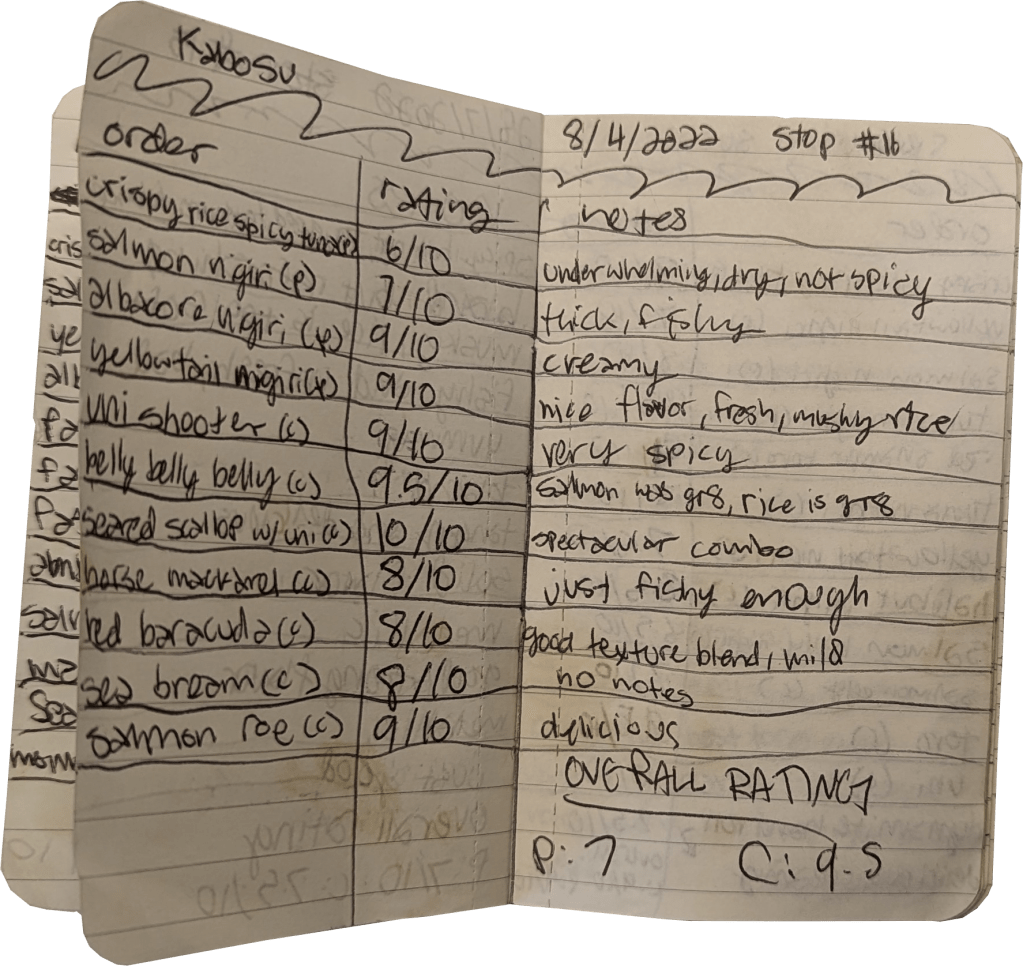 Kabosu
8/4/2022 Stop #16
order rating notes
crispy rice spicy tuna(p) 6/10 underwhelming, dry, not spicy
salmon nigiri (p) 7/10 thick, fishy
albacore nigiri (p) 9/10 creamy
yellowtail nigiri (p) 9/10 nice flavor, fresh, mushy rice
uni shooter (c) 9/10 very spicy
belly belly belly (c) 9.5/10 salmon was gr8, rice is gr8
seared scallop w/ uni (c) 10/10 spectacular combo
horse mackarel (c) 8/10 just fishy enough
red baracuda (c) 8/10 good texture blend, mild
sea bream (c) 8/10 no notes
salmon roe (c) 9/10 delicious
OVERALL RATING
P: 7 C: 9.5